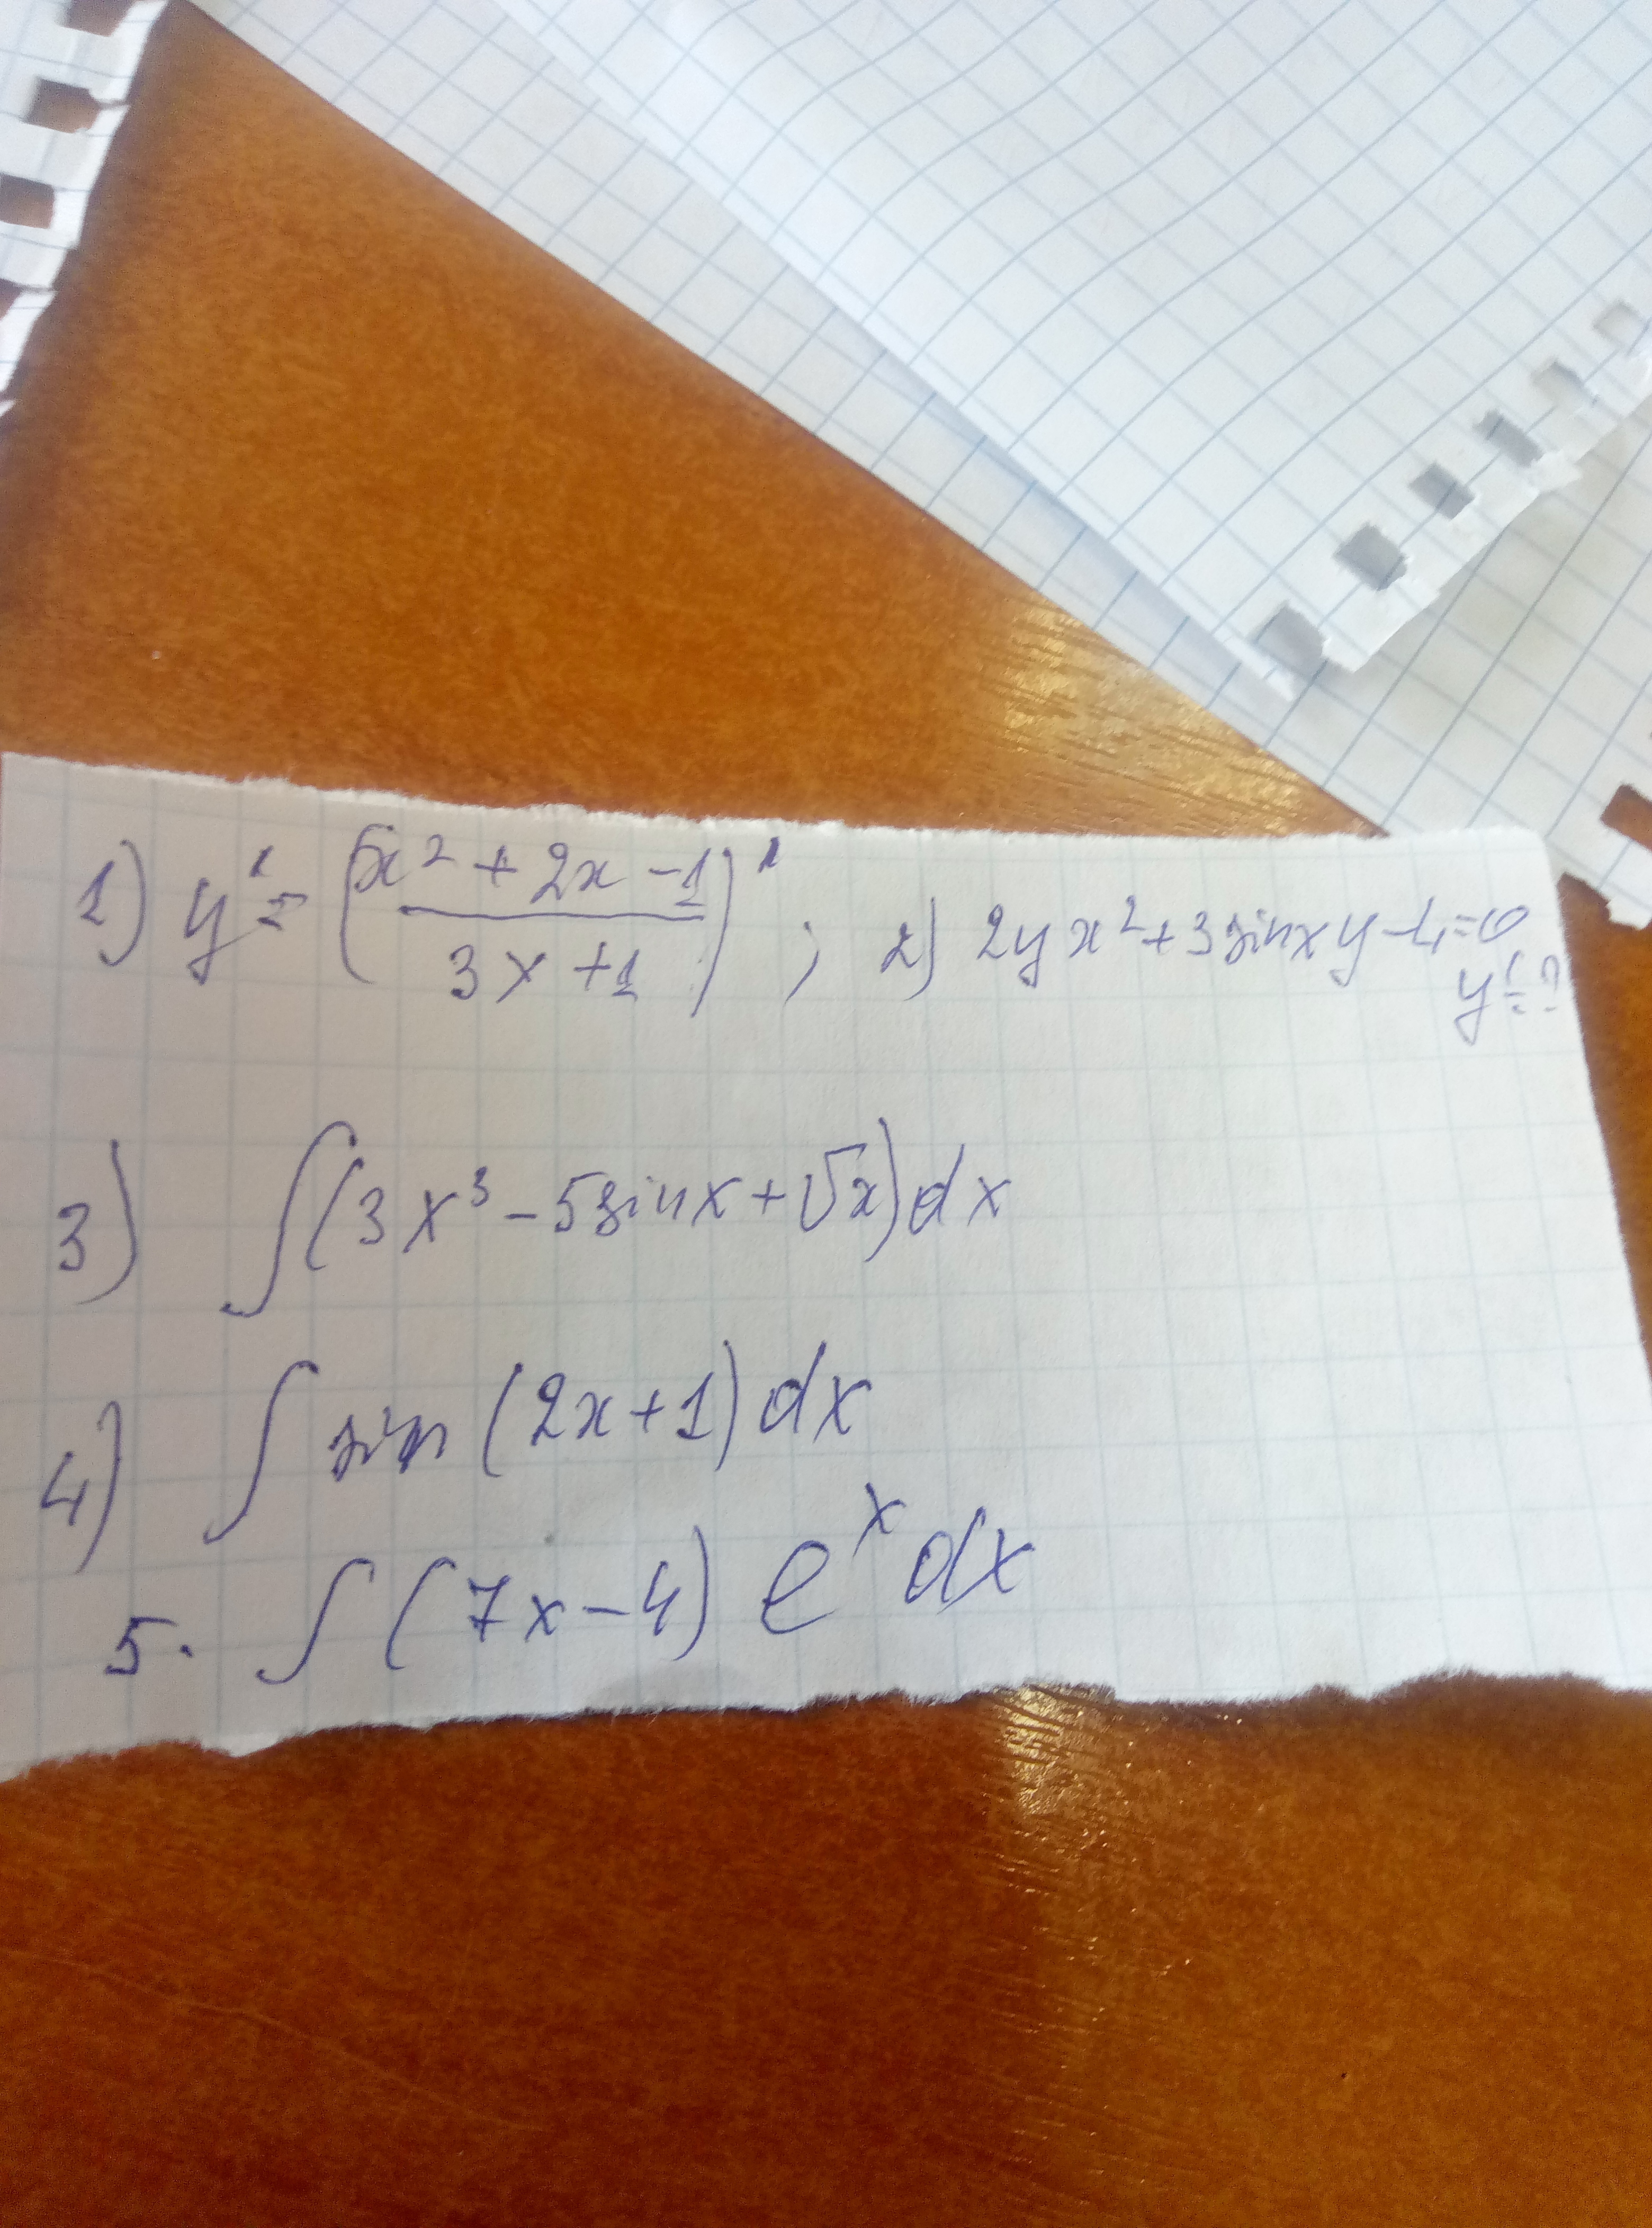 1) y' = (5x² + 2x - 1 / 3x + 1)' ; 2) 2yx² + 3sinxy - 4 = 0
y' = ?
3) ∫(3x³ - 5sinx + √x)dx
4) ∫ sin (2x+1) dx
5. ∫ (7x-4) eˣ dx